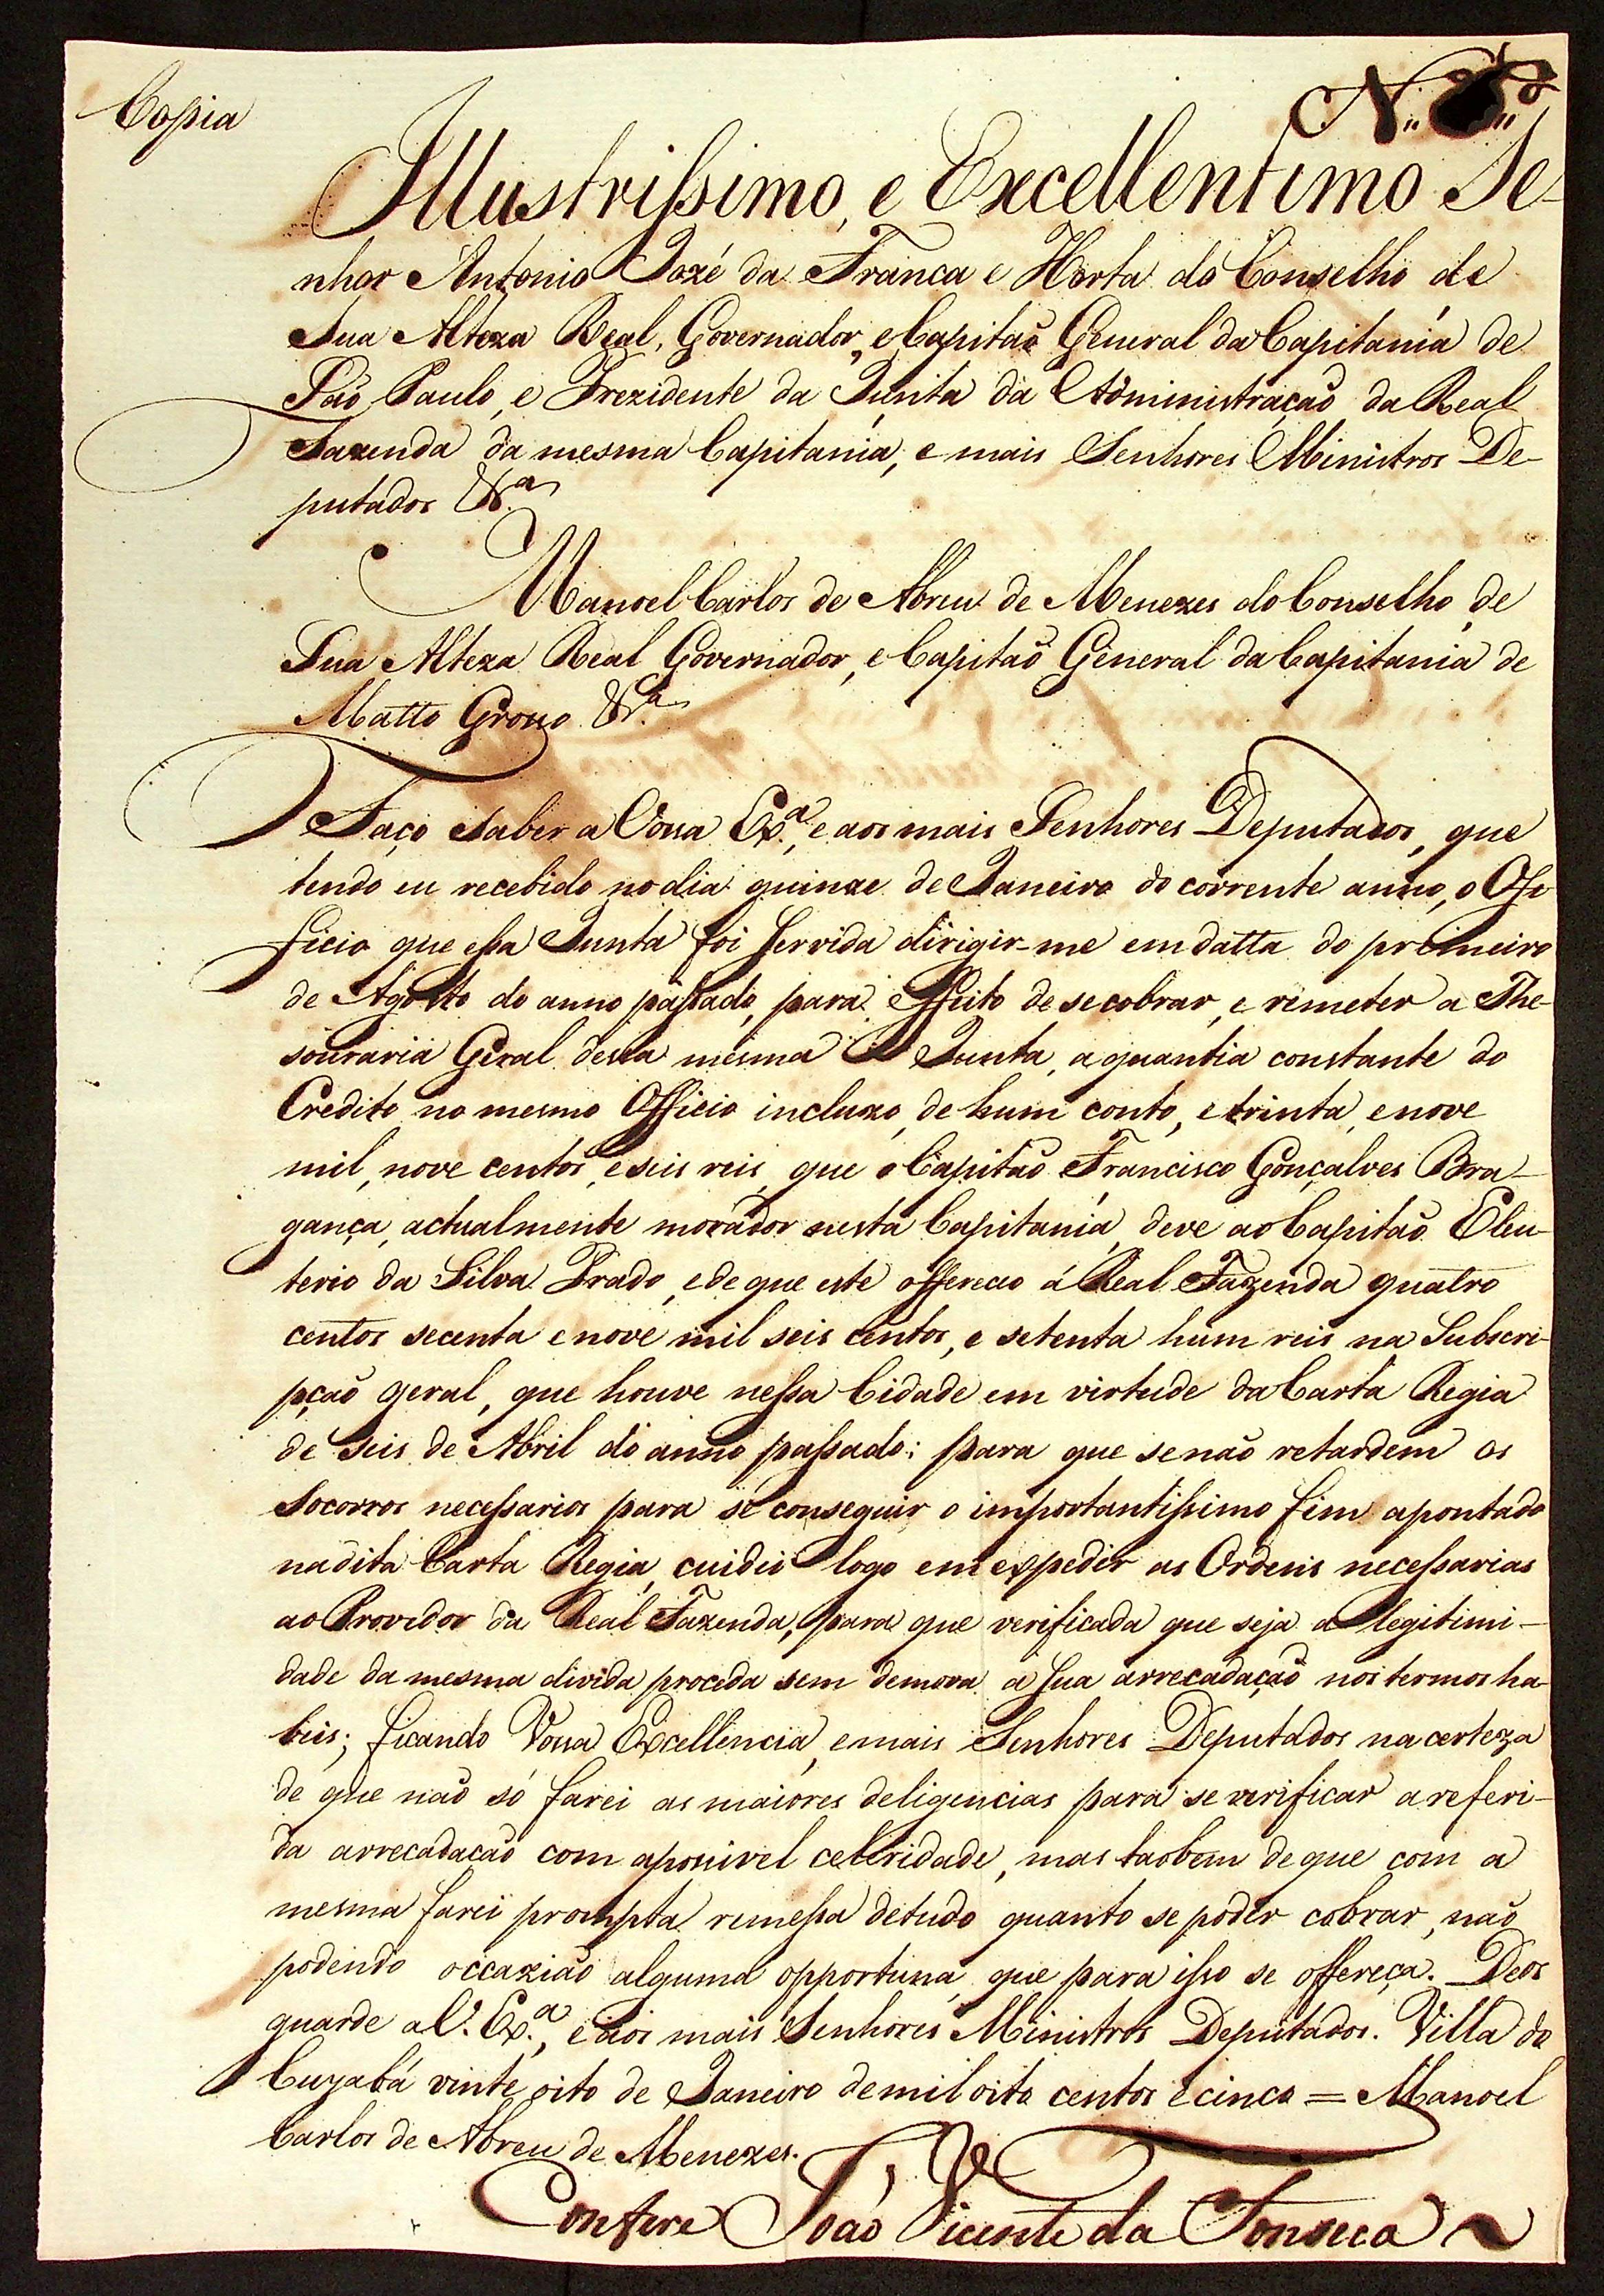 Copia
N.
Illustrissimo, e Excellentimo Se-
nhor Antonio Jozé da Franca e Horta do Conselho de
Sua Alteza Real, Governador, e Capitaõ General da Capitania de
Saõ Paulo, e Prezidente da Junta da Administraçaõ da Real
Fazenda da mesma Capitania, e mais Senhores Ministros De-
putados &.ª
Manoel Carlos de Abreu de Menezes do Conselho de
Sua Alteza Real Governador, e Capitaõ General da Capitania de
Matto Grosso &.ª
Faço saber a Vossa Ex.ª, e aos mais Senhores Deputados, que
tendo eu recebido no dia quinze de Janeiro do corrente anno, o Of-
ficio que essa Junta foi servida dirigir-me em datta do primeiro
de Agosto do anno passado, para effeito de se cobrar, e remeter a The-
souraria Geral dessa mesma Junta, a quantia constante do
Credito no mesmo Officio incluzo, de hum conto, e trinta, e nove
mil, nove centos, e seis reis, que o Capitaõ Francisco Gonçalves Bra-
gança, actualmente morador nesta Capitania, deve ao Capitaõ Eleu-
terio da Silva Prado, e de que este offereceo á Real Fazenda quatro
centos secenta e nove mil seis centos, e setenta hum reis na Subscri-
pçaõ geral, que houve nessa Cidade em virtude da Carta Regia
de seis de Abril do anno passado: para que se naõ retardem os
socorros necessarios para se conseguir o importantissimo fim apontado
na dita Carta Regia, cuidei logo em expedir as Ordens necessarias
ao Provedor da Real Fazenda, para que verificada que seja a legitimi-
dade da mesma divida proceda sem demora a sua arrecadaçaõ nos termos ha-
beis; ficando Vossa Excellencia, e mais Senhores Deputados na certeza
de que naõ só farei as maiores deligencias para se verificar a referi-
da arrecadacaõ com a possivel celeridade, mas taobem de que com a
mesma farei prompta remessa de tudo quanto se poder cobrar, naõ
podendo occaziaõ alguma opportuna, que para isso se offereça. Deos
guarde a V. Ex.ª, e aos mais Senhores Ministros Deputados. Villa do
Cuyabá vinte oito de Janeiro de mil oito centos e cinco = Manoel
Carlos de Abreu de Menezes.
Confere João Vicente da Fonseca